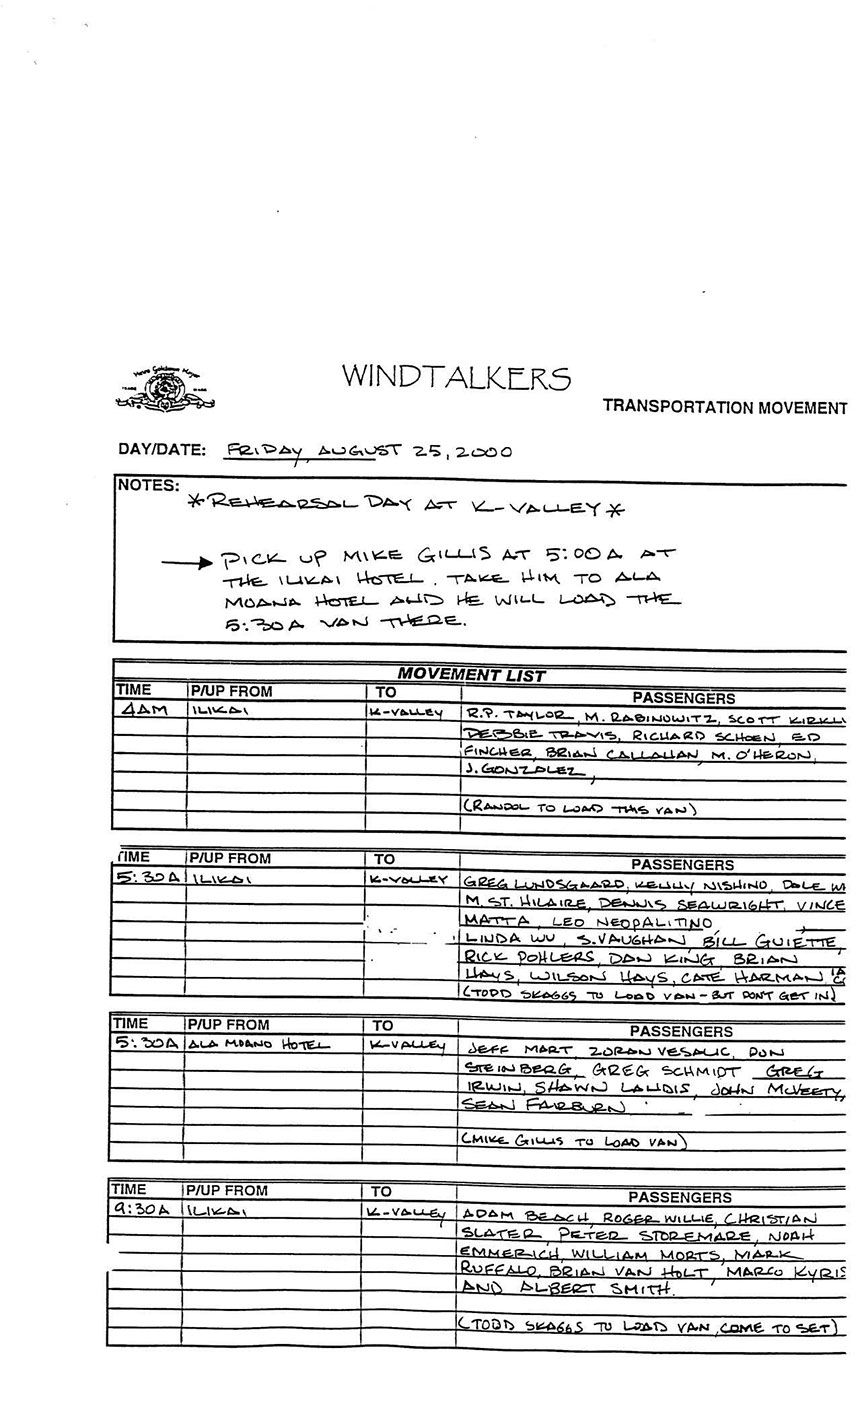 WINDTALKERS
TRANSPORTATION MOVEMENT
DAY/DATE: FRIDAY, AUGUST 25, 2000
NOTES:
*REHEARSAL DAY AT K-VALLEY*
→ PICK UP MIKE GILLIS AT 5:00A AT
THE ILIKAI HOTEL. TAKE HIM TO ALA
MOANA HOTEL AND HE WILL LOAD THE
5:30A VAN THERE.
MOVEMENT LIST
TIME P/UP FROM TO PASSENGERS
4AM ILIKAI K-VALLEY R.P. TAYLOR, M. RABINOWITZ, SCOTT
DEBBIE TRAVIS, RICHARD SCHOEN, ED
FINCHER, BRIAN CALLAHAN, M. O'HERON,
J. GONZALEZ,
(RANDOL TO LOAD THIS VAN)
TIME P/UP FROM TO PASSENGERS
5:30A ILIKAI K-VALLEY GREG LUNDSGAARD, KENNY NISHINO, DALE
M. ST. HILAIRE, DENNIS SEAWRIGHT, VINCE
MATTA, LEO NEOPALITINO,
LINDA WU, S. VAUGHAN BILL GUIETTE,
RICK POHLERS, DAN KING, BRIAN
HAYS, WILSON HAYS, CATE HARMAN
(TODD SKAGGS TO LOAD VAN - BUT DON'T GET IN)
TIME P/UP FROM TO PASSENGERS
5:30A ALA MOANO HOTEL K-VALLEY JEFF MART, ZORAN VESALIC, DON
STEINBERG, GREG SCHMIDT GREG
IRWIN, SHAWN LANDIS, JOHN MCVEETY,
SEAN FAIRBURN
(MIKE GILLIS TO LOAD VAN)
TIME P/UP FROM TO PASSENGERS
9:30A ILIKAI K-VALLEY ADAM BEACH, ROGER WILLIE, CHRISTIAN
SLATER, PETER STOREMARE, NOAH
EMMERICH, WILLIAM MORTS, MARK
RUFFALO, BRIAN VAN HOLT, MARCO KYRIS
AND ALBERT SMITH.
(TODD SKAGGS TO LOAD VAN, COME TO SET)